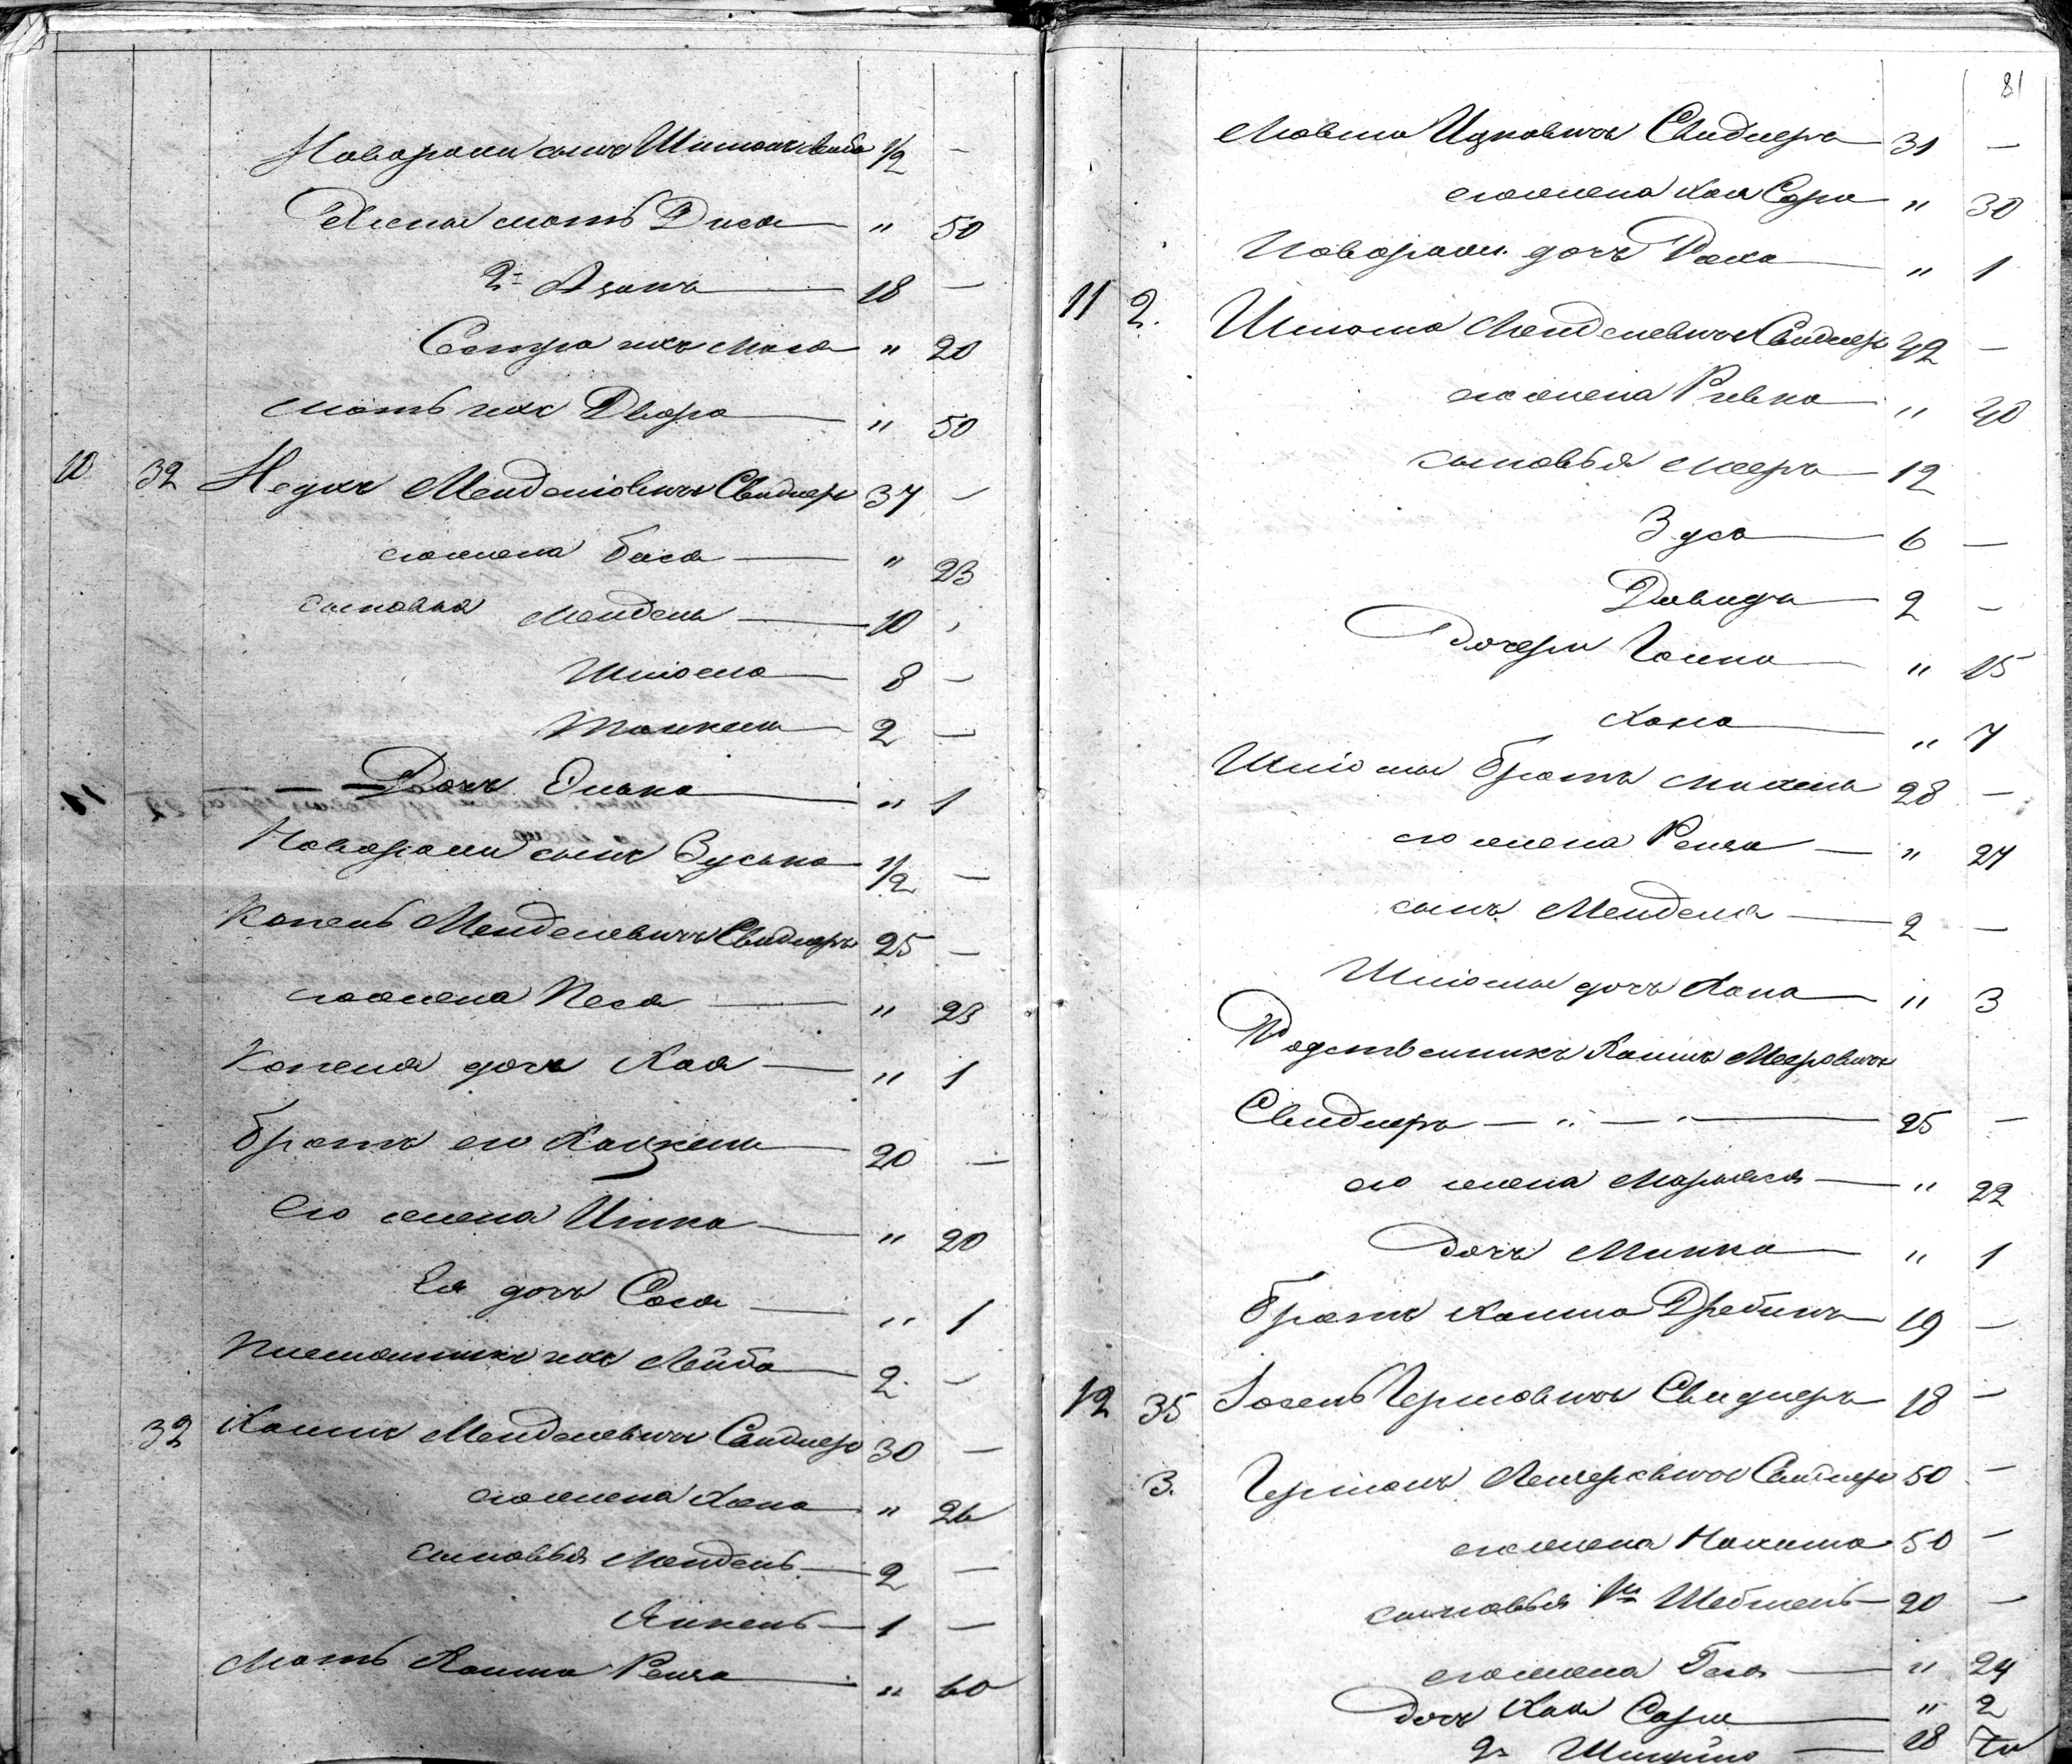 Новорожн сынъ Шимонъ Лейба 1/2 —
мать Двося " 50
2й Аронъ 18 —
Сестра ихъ Маса " 20
Мать ихъ Двора " 50
10 32 Менделiовичъ Свидлеръ 37 —
его жена Бася " 23
сыновья Мендель 10 -
Шліома 8 —
Янкель 2 —
Дочь " 1
Новорожн сынъ Зуська 1/2 —
Копель Менделевичъ Свидлеръ 25 —
его жена Песя " 23
Копеля дочь Хая " 1
братъ его Хацкель 20 —
Его жена Итка " 20
Ея дочь Сося " 1
Племянникъ ихъ Лейба 2 —
32 Хаимъ Менделевичъ Свидлеръ 30 —
его жена Хана " 26
сыновья Мендель 2 —
Янкель 1 —
Мать Хаима Рейза " 60
81
Мовша Ицковичъ Свидлеръ 31 —
его жена Хая Сора " 30
Новорожн. дочь Раха " 1
11 2. Шліома Менделевичъ Свидлеръ 42 —
его жена Ривка " 40
сыновья Мееръ 12
Зусь 6 —
Давидъ 2 —
Дочери " 15
Хана " 7
Шліомы братъ Михель 28 —
его жена Рейза " 27
сынъ Мендель 2 —
Шліомы дочь Хана " 3
Родственникъ Хаимъ Мееровичъ
Свидлеръ 25 —
его жена Марьяся " 22
Дочь Минка " 1
братъ Хаима 19 —
12 35 Іосель Гершовичъ Свидлеръ 18 —
3. Лейзеровичъ Свидлеръ 50 —
его жена Нахима 50 —
сыновья 1й Шебшель 20 —
его жена Бася " 24
дочь Хая Сора " 2
2й 18